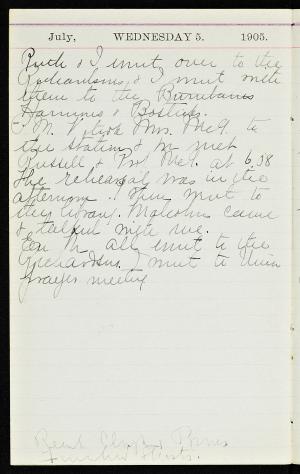 July, WEDNESDAY 5. 1905.
Ruth & I went over to the
Richardsons, & I went with
them to the
Hammers & Bostins.
E. M. I took Mrs. McG. to
the station & M met
Russell & Prof McG. at 6.38
The rehearsal was in the
afternoon. I then went to
the library. Malcolm came
& talked with me.
Eve M. all went to the
Richardsons. I went to Union
prayer meeting
Read